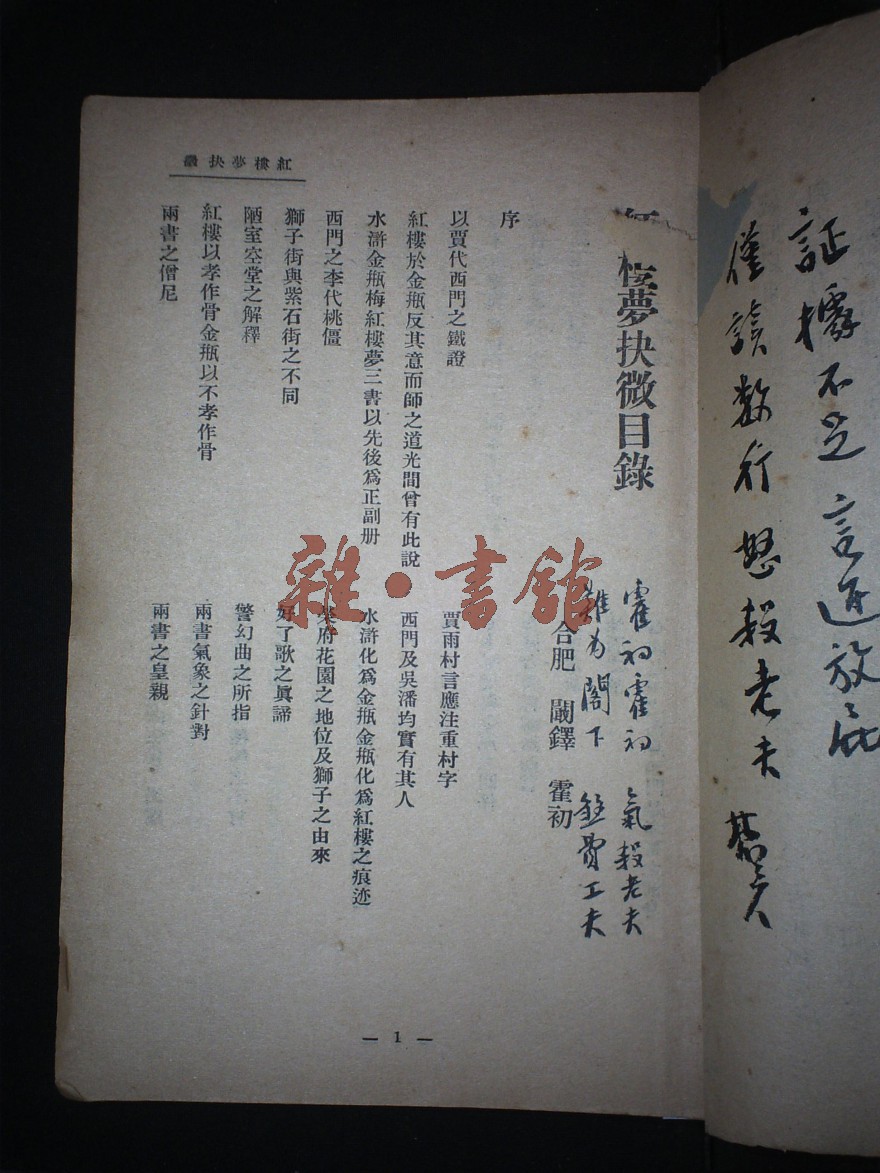 証據不足言近放屁
僅讀数行怒殺老夫
樓夢抉微目錄
霍初霍初氣殺老夫
難爲閣下
費工夫
合肥 闞鐸 霍初
序
以賈代西門之鐵證
賈雨村言應注重村字
紅樓於金瓶反其意而師之道光間曾有此說
西門及吳潘均實有其人
水滸金瓶梅紅樓夢三書以先後爲正副册
水滸化爲金瓶金瓶化爲紅樓之痕迹
西門之李代桃僵
府花園之地位及獅子之由來
獅子街與紫石街之不同
好了歌之眞諦
陋室空堂之解釋
警幻曲之所指
紅樓以孝作骨金瓶以不孝作骨
兩書氣象之針對
兩書之僧尼
兩書之皇親
紅樓夢抉微
— 1 —
雜·書館